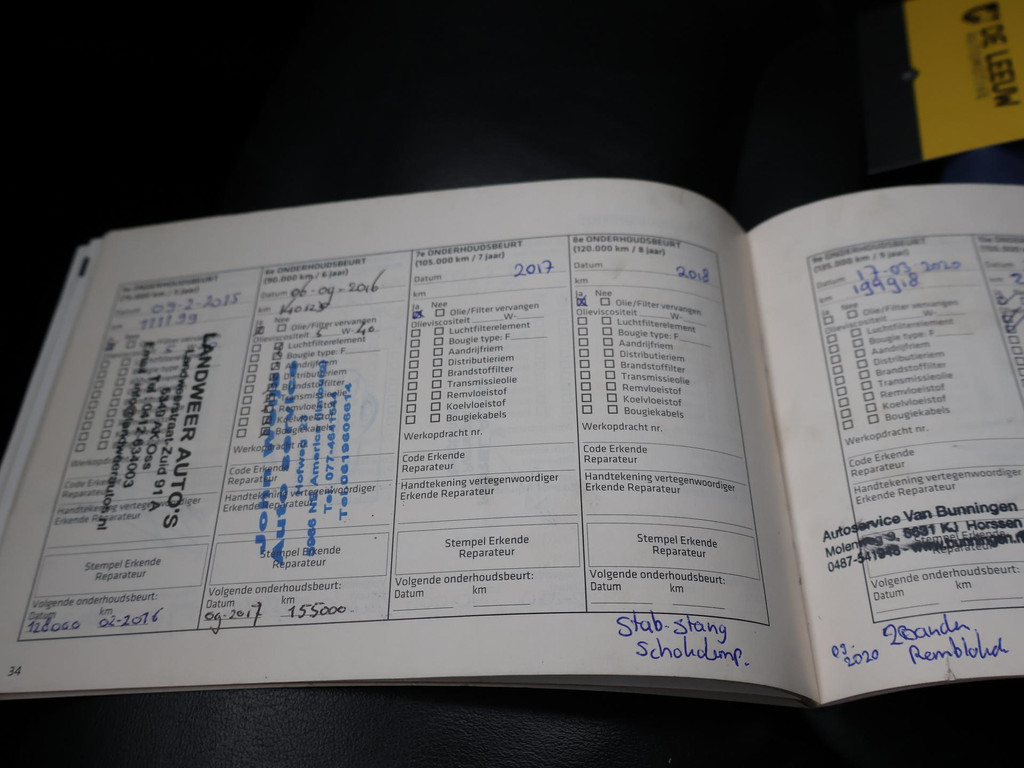 DE LEEUW
AUTOMOTIVE
5e ONDERHOUDSBEURT
(75.000 km / 5 jaar)
Datum 09-2-2015
km 111199
LANDWER AUTO'S
Tel: 0412-634003
Erkende Reparateur
Handtekening vertegenwoordiger
Erkende Reparateur
Stempel Erkende
Reparateur
Volgende onderhoudsbeurt:
Datum km
128000 02-2016
34
6e ONDERHOUDSBEURT
(90.000 km / 6 jaar)
Datum 06-09-2016
km 140129
Ja Nee
Olie/Filter vervangen
Olieviscositeit 5 W- 40
Luchtfilterelement
Bougie type: F
Aandrijfriem
Distributieriem
Brandstoffilter
Auto Service
Hofweg 23
America
Tel. 077-4641544
Tel. 0619606614
Werkopdracht nr.
Code Erkende
Reparateur
Handtekening vertegenwoordiger
Erkende Reparateur
Stempel Erkende
Reparateur
Volgende onderhoudsbeurt:
Datum km
09-2017 155000
7e ONDERHOUDSBEURT
(105.000 km / 7 jaar)
Datum 2017
km
Ja Nee
Olie/Filter vervangen
Olieviscositeit W-
Luchtfilterelement
Bougie type: F
Aandrijfriem
Distributieriem
Brandstoffilter
Transmissieolie
Remvloeistof
Koelvloeistof
Bougiekabels
Werkopdracht nr.
Code Erkende
Reparateur
Handtekening vertegenwoordiger
Erkende Reparateur
Stempel Erkende
Reparateur
Volgende onderhoudsbeurt:
Datum km
8e ONDERHOUDSBEURT
(120.000 km / 8 jaar)
Datum 2018
km
Ja Nee
Olie/Filter vervangen
Olieviscositeit W-
Luchtfilterelement
Bougie type: F
Aandrijfriem
Distributieriem
Brandstoffilter
Transmissieolie
Remvloeistof
Koelvloeistof
Bougiekabels
Werkopdracht nr.
Code Erkende
Reparateur
Handtekening vertegenwoordiger
Erkende Reparateur
Stempel Erkende
Reparateur
Volgende onderhoudsbeurt:
Datum km
Stab-stang
Schokdemp.
9e ONDERHOUDSBEURT
(135.000 km / 9 jaar)
Datum 17-07-2020
km 199918
Ja Nee
Olie/Filter vervangen
Olieviscositeit W-
Luchtfilterelement
Bougie type: F
Aandrijfriem
Distributieriem
Brandstoffilter
Transmissieolie
Remvloeistof
Koelvloeistof
Bougiekabels
Werkopdracht nr.
Code Erkende
Reparateur
Handtekening vertegenwoordiger
Erkende Reparateur
Autoservice Van Bunningen
Molenweg 9, 6631 KJ Horssen
Volgende onderhoudsbeurt:
Datum km
2020 2 Banden